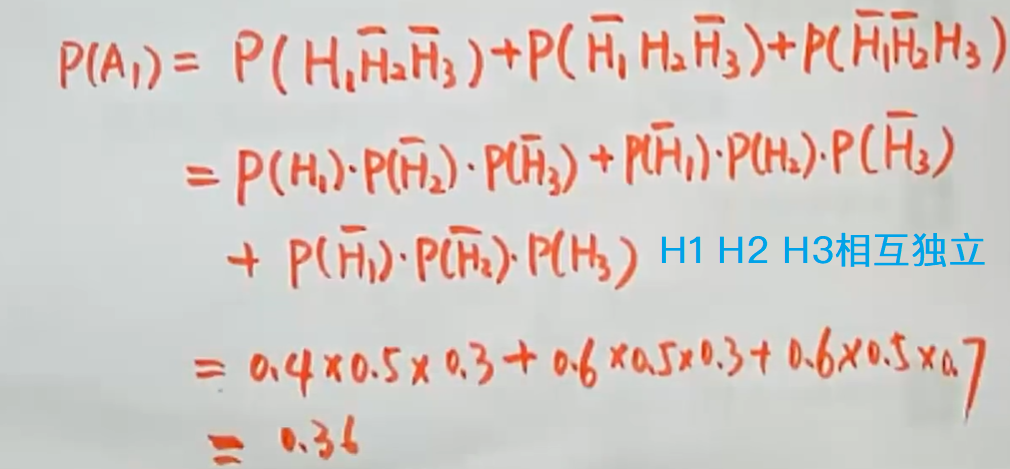 P(A₁) = P(H₁H̄₂H̄₃)+P(H̄₁H₂H̄₃)+P(H̄₁H̄₂H₃)
= P(H₁)·P(H̄₂)·P(H̄₃)+P(H̄₁)·P(H₂)·P(H̄₃)
+ P(H̄₁)·P(H̄₂)·P(H₃) H1 H2 H3相互独立
= 0.4×0.5×0.3+0.6×0.5×0.3+0.6×0.5×0.7
= 0.36